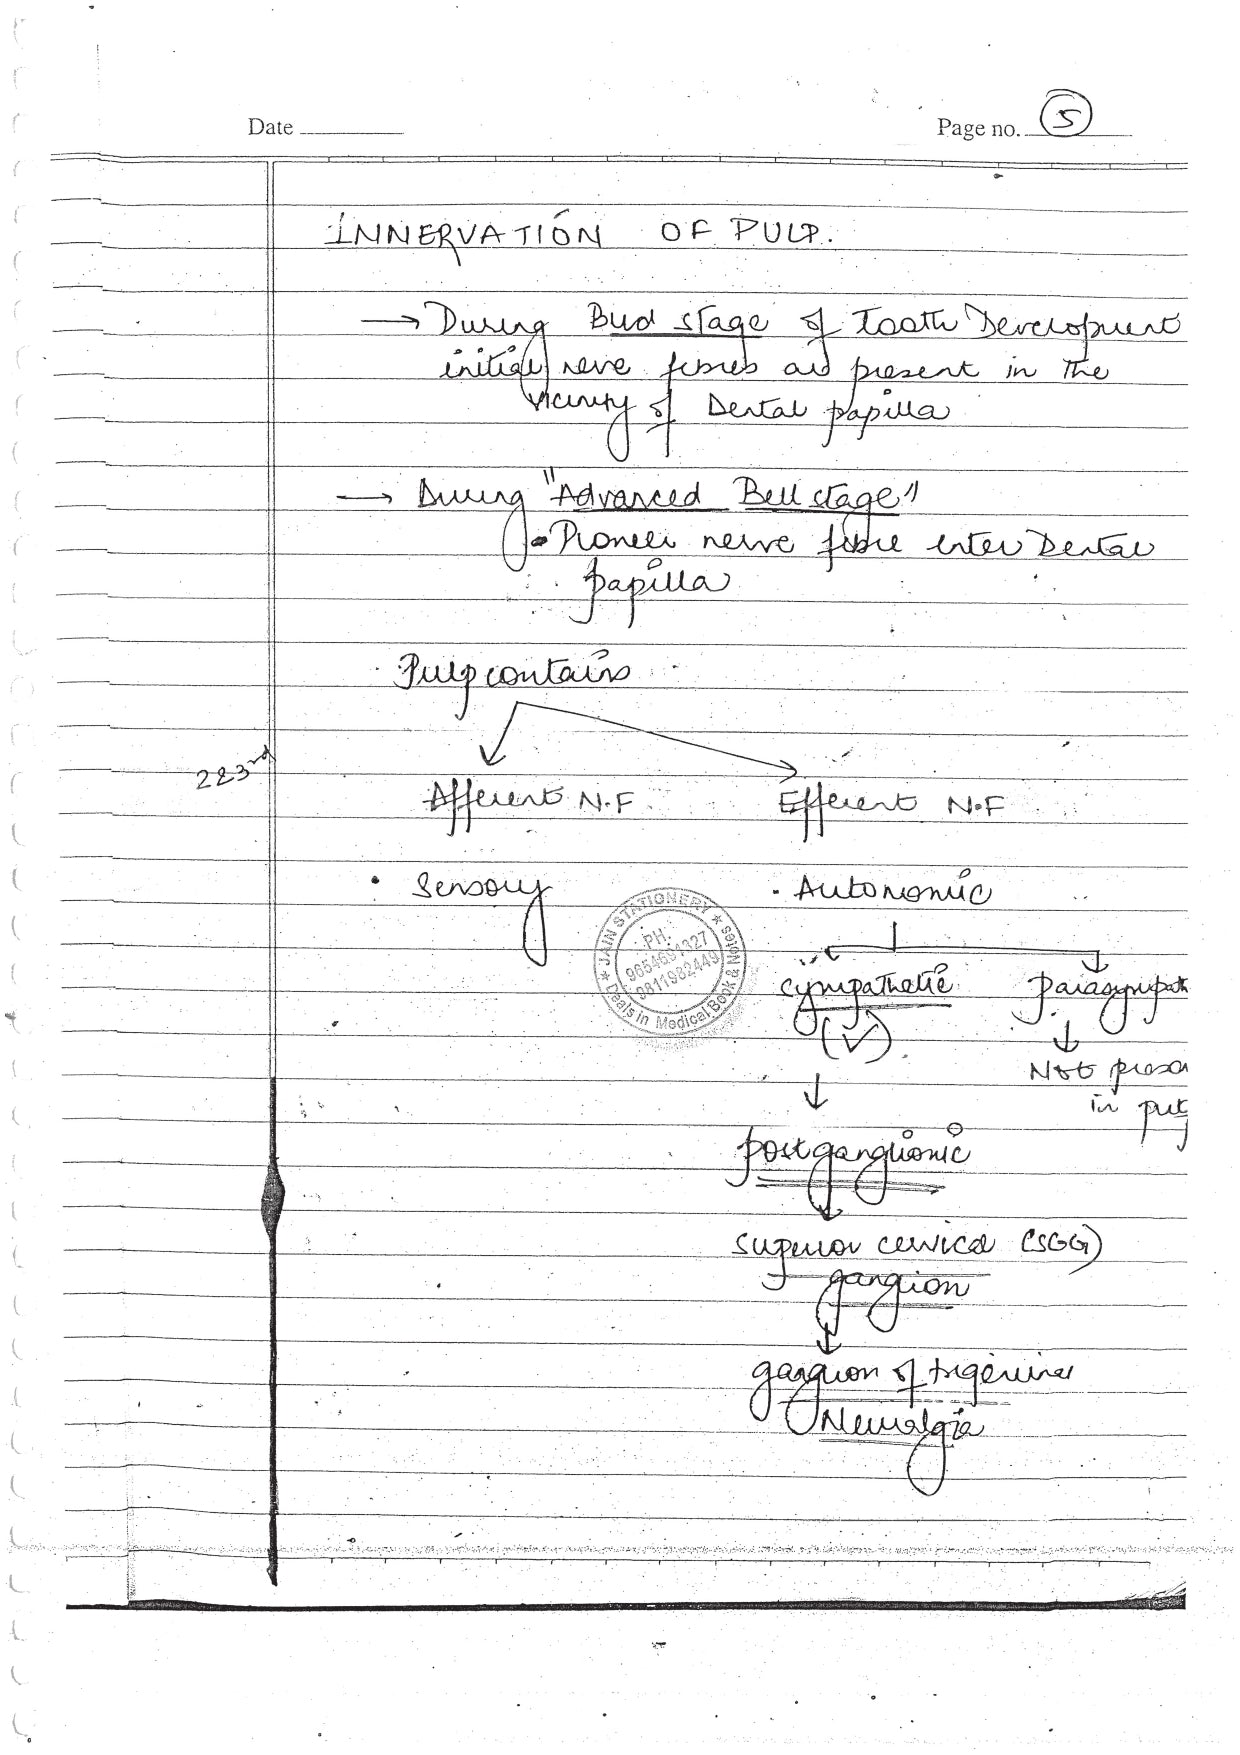 Date
Page no. 5
INNERVATION OF PULP.
→ During Bud stage of Tooth Development
initial nerve fibres are present in the
vicinity of Dental papilla
→ During "Advanced Bell stage"
• Pioneer nerve fibre enter Dental
papilla
Pulp contains
223rd
Afferent N.F Efferent N.F
• Sensory • Autonomic
JAIN STATIONERY
PH.
9654691327
9811982449
Deals in Medical Book & Notes
Cympathetic Parasympath
(✓) ↓
Not presen
↓ in pulp
post ganglionic
Superior cervical (SGG)
gangion
↓
gangion of trigeminal
Neuralgia